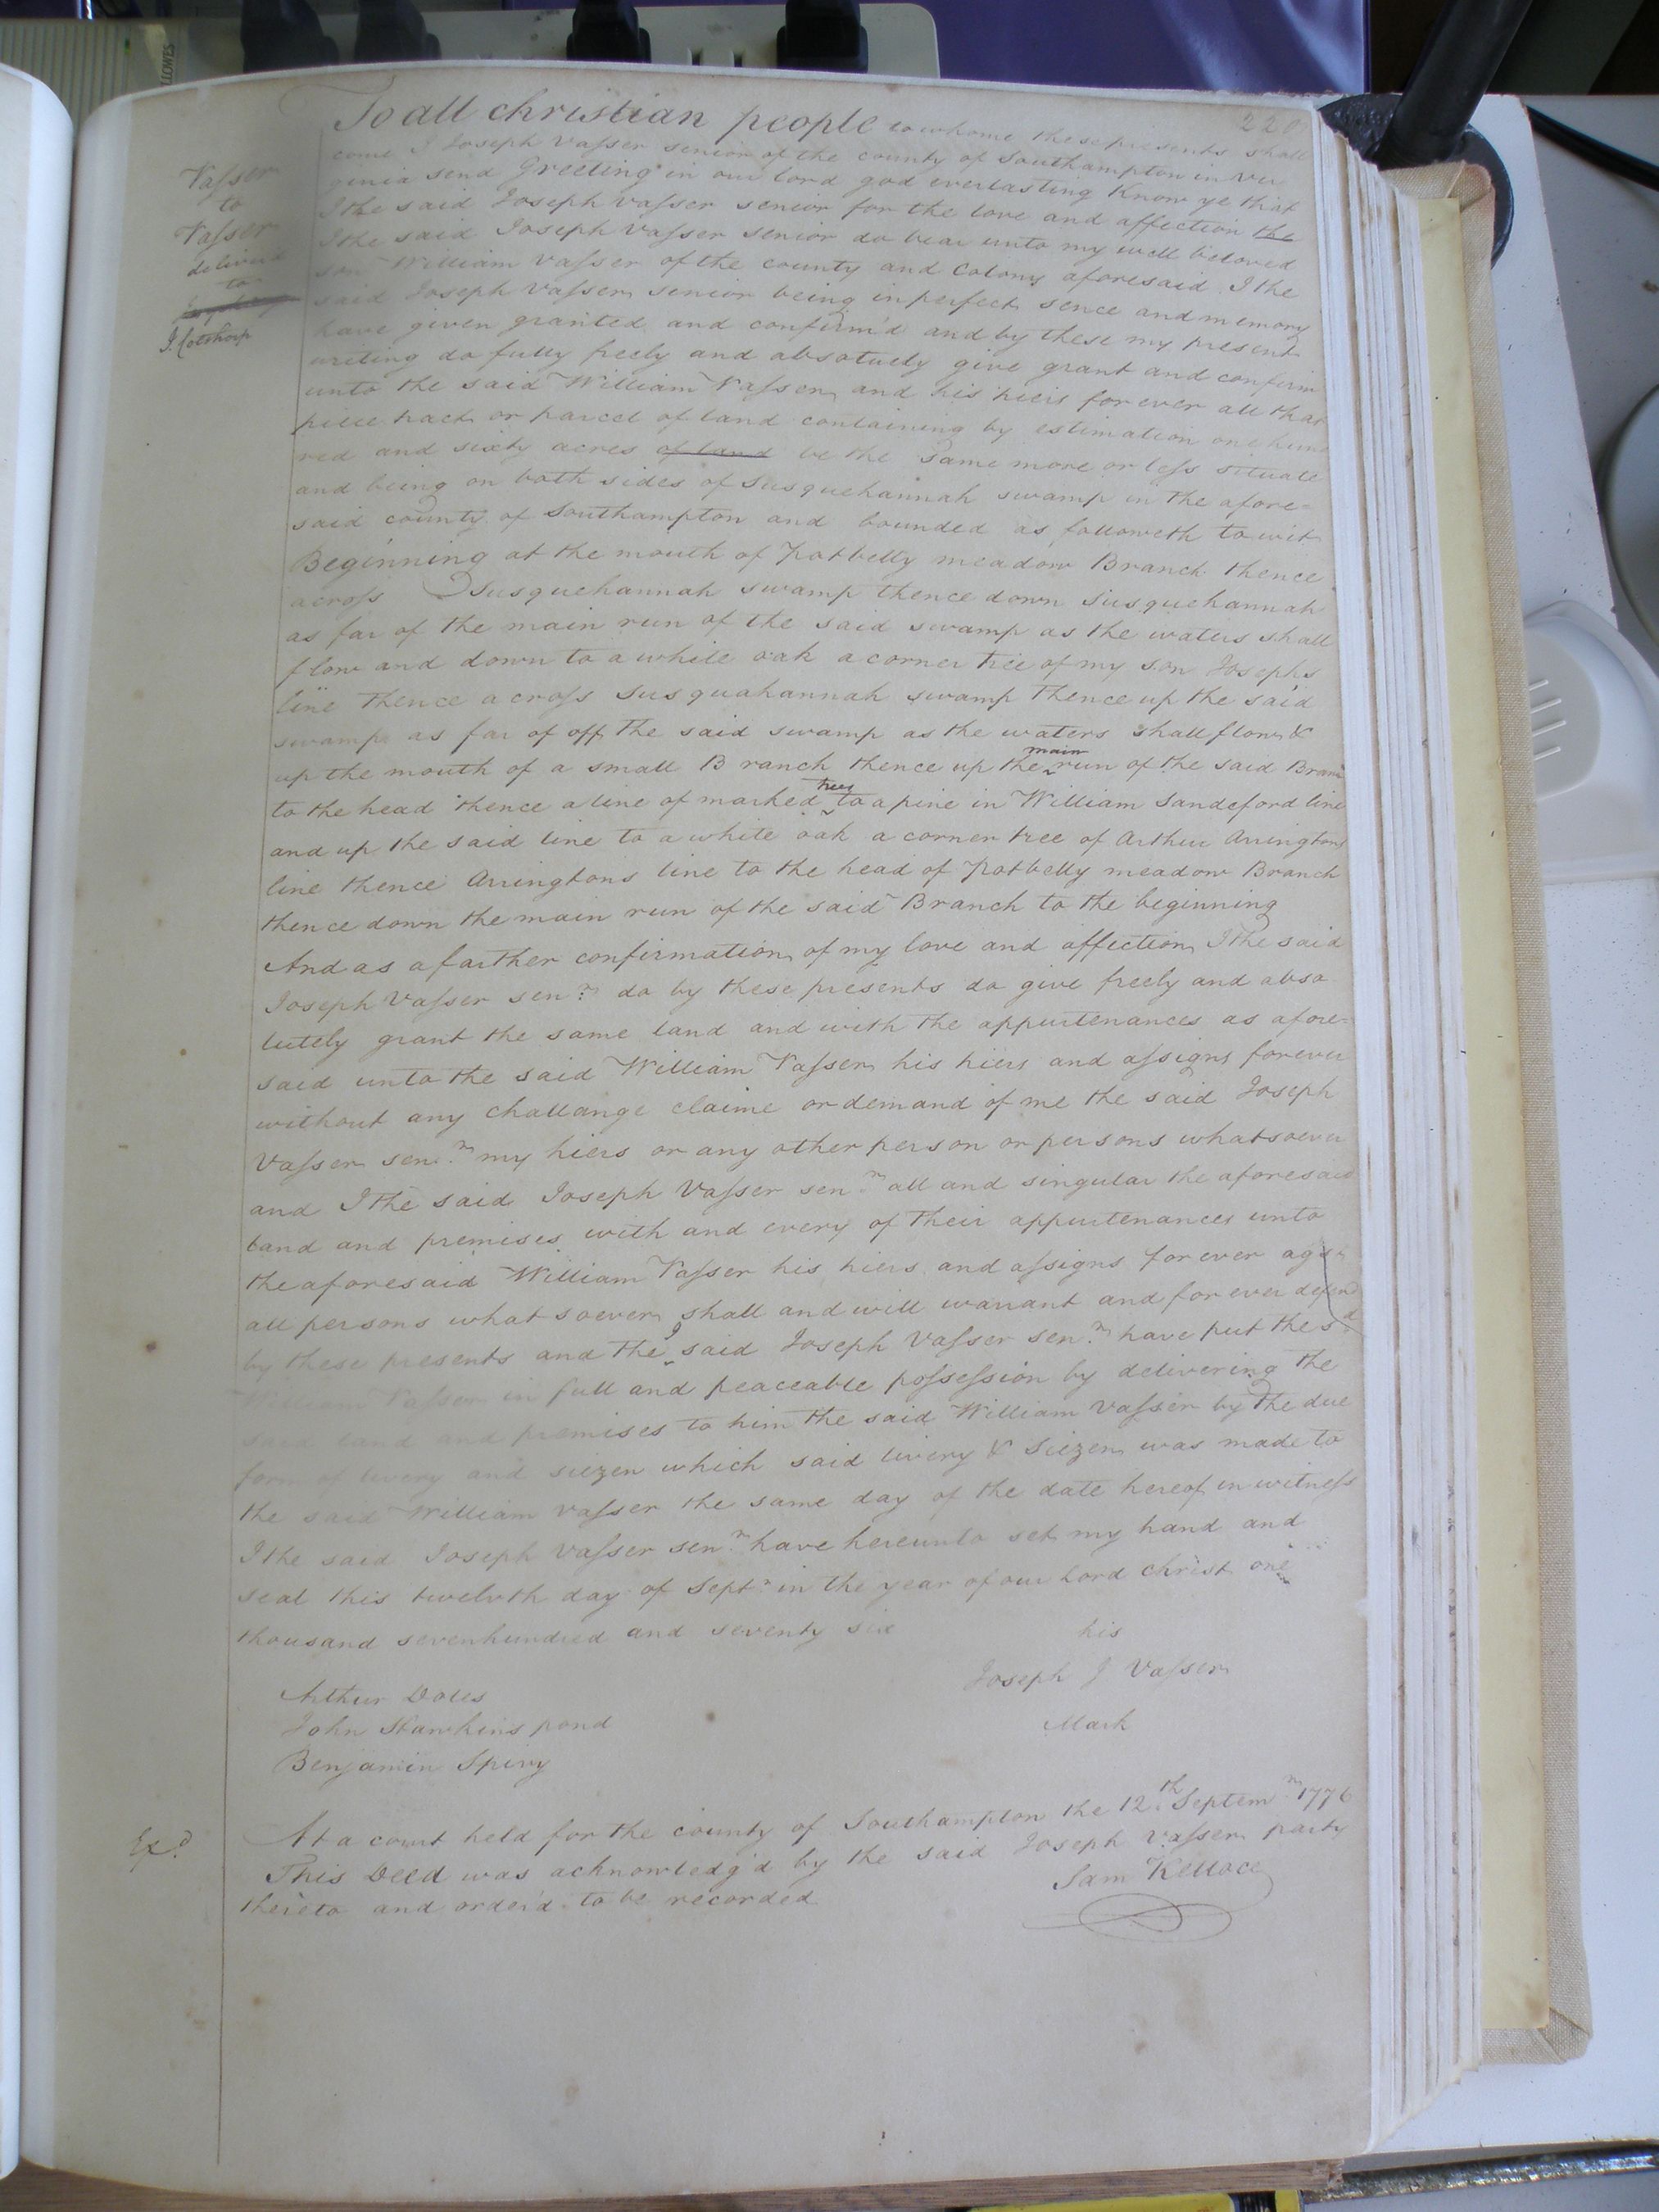 To all christian people to whome these presents shall
come I Joseph Vaſser senior of the county of Southampton in Vir
ginia send Greeting in our lord god everlasting Know ye that
I the said Joseph Vaſser senior for the love and affection the
I the said Joseph Vaſser senior do bear unto my well beloved
son William Vaſser of the county and Colony aforesaid I the
said Joseph Vaſser senior being in perfect sence and memory
have given granted and confirm'd and by these my present
writing do fully freely and absolutely give grant and confirm
unto the said William Vaſser and his hiers for ever all that
piece tract or parcel of land containing by estimation one hund
red and sixty acres of land be the same more or leſs situate
and being on both sides of Susquehannah swamp in the afore=
said county of Southampton and bounded as followeth to wit
Beginning at the mouth of Potbelly meadow Branch thence
acroſs Susquehannah swamp thence down Susquehannah
as far of the main run of the said swamp as the waters shall
flow and down to a white oak a corner tree of my son Josephs
line thence acroſs Susquahannah swamp thence up the said
swamp as far of off the said swamp as the waters shall flow &
up the mouth of a small Branch thence up the main run of the said Bran
to the head thence a line of marked trees to a pine in William Sandeford line
and up the said line to a white oak a corner tree of Arthur Arringtons
line thence Arringtons line to the head of Potbelly meadow Branch
thence down the main run of the said Branch to the beginning
And as a farther confirmation of my love and affection I the said
Joseph Vaſser senr do by these presents do give freely and abso
lutely grant the same land and with the appurtenances as afore=
said unto the said William Vaſser his hiers and aſsigns forever
without any challange claime or demand of me the said Joseph
Vaſser senr my hiers or any other person or persons whatsoever
and I the said Joseph Vaſser senr all and singular the aforesaid
land and premises with and every of their appurtenances unto
the aforesaid William Vaſser his hiers and aſsigns for ever agst
all persons whatsoever shall and will warrant and for ever defend
by these presents and the I said Joseph Vaſser senr have put the sd
William Vaſser in full and peaceable poſseſsion by delivering the
said land and premises to him the said William Vaſser by the due
form of livery and siezen which said livery & Siezen was made to
the said William Vaſser the same day of the date hereof in witneſs
I the said Joseph Vaſser senr have hereunto set my hand and
seal this twelvth day of Septr in the year of our Lord Christ one
thousand sevenhundred and seventy six
his
Joseph J Vaſser
Mark
Arthur Doles
John Hawkins pond
Benjamin Spivy
At a court held for the county of Southampton the 12th Septemr 1776
This Deed was acknowledg'd by the said Joseph Vaſser party
thereto and order'd to be recorded
Sam Kellace
Vaſser
to
Vaſser
deliver'd
to
Exd